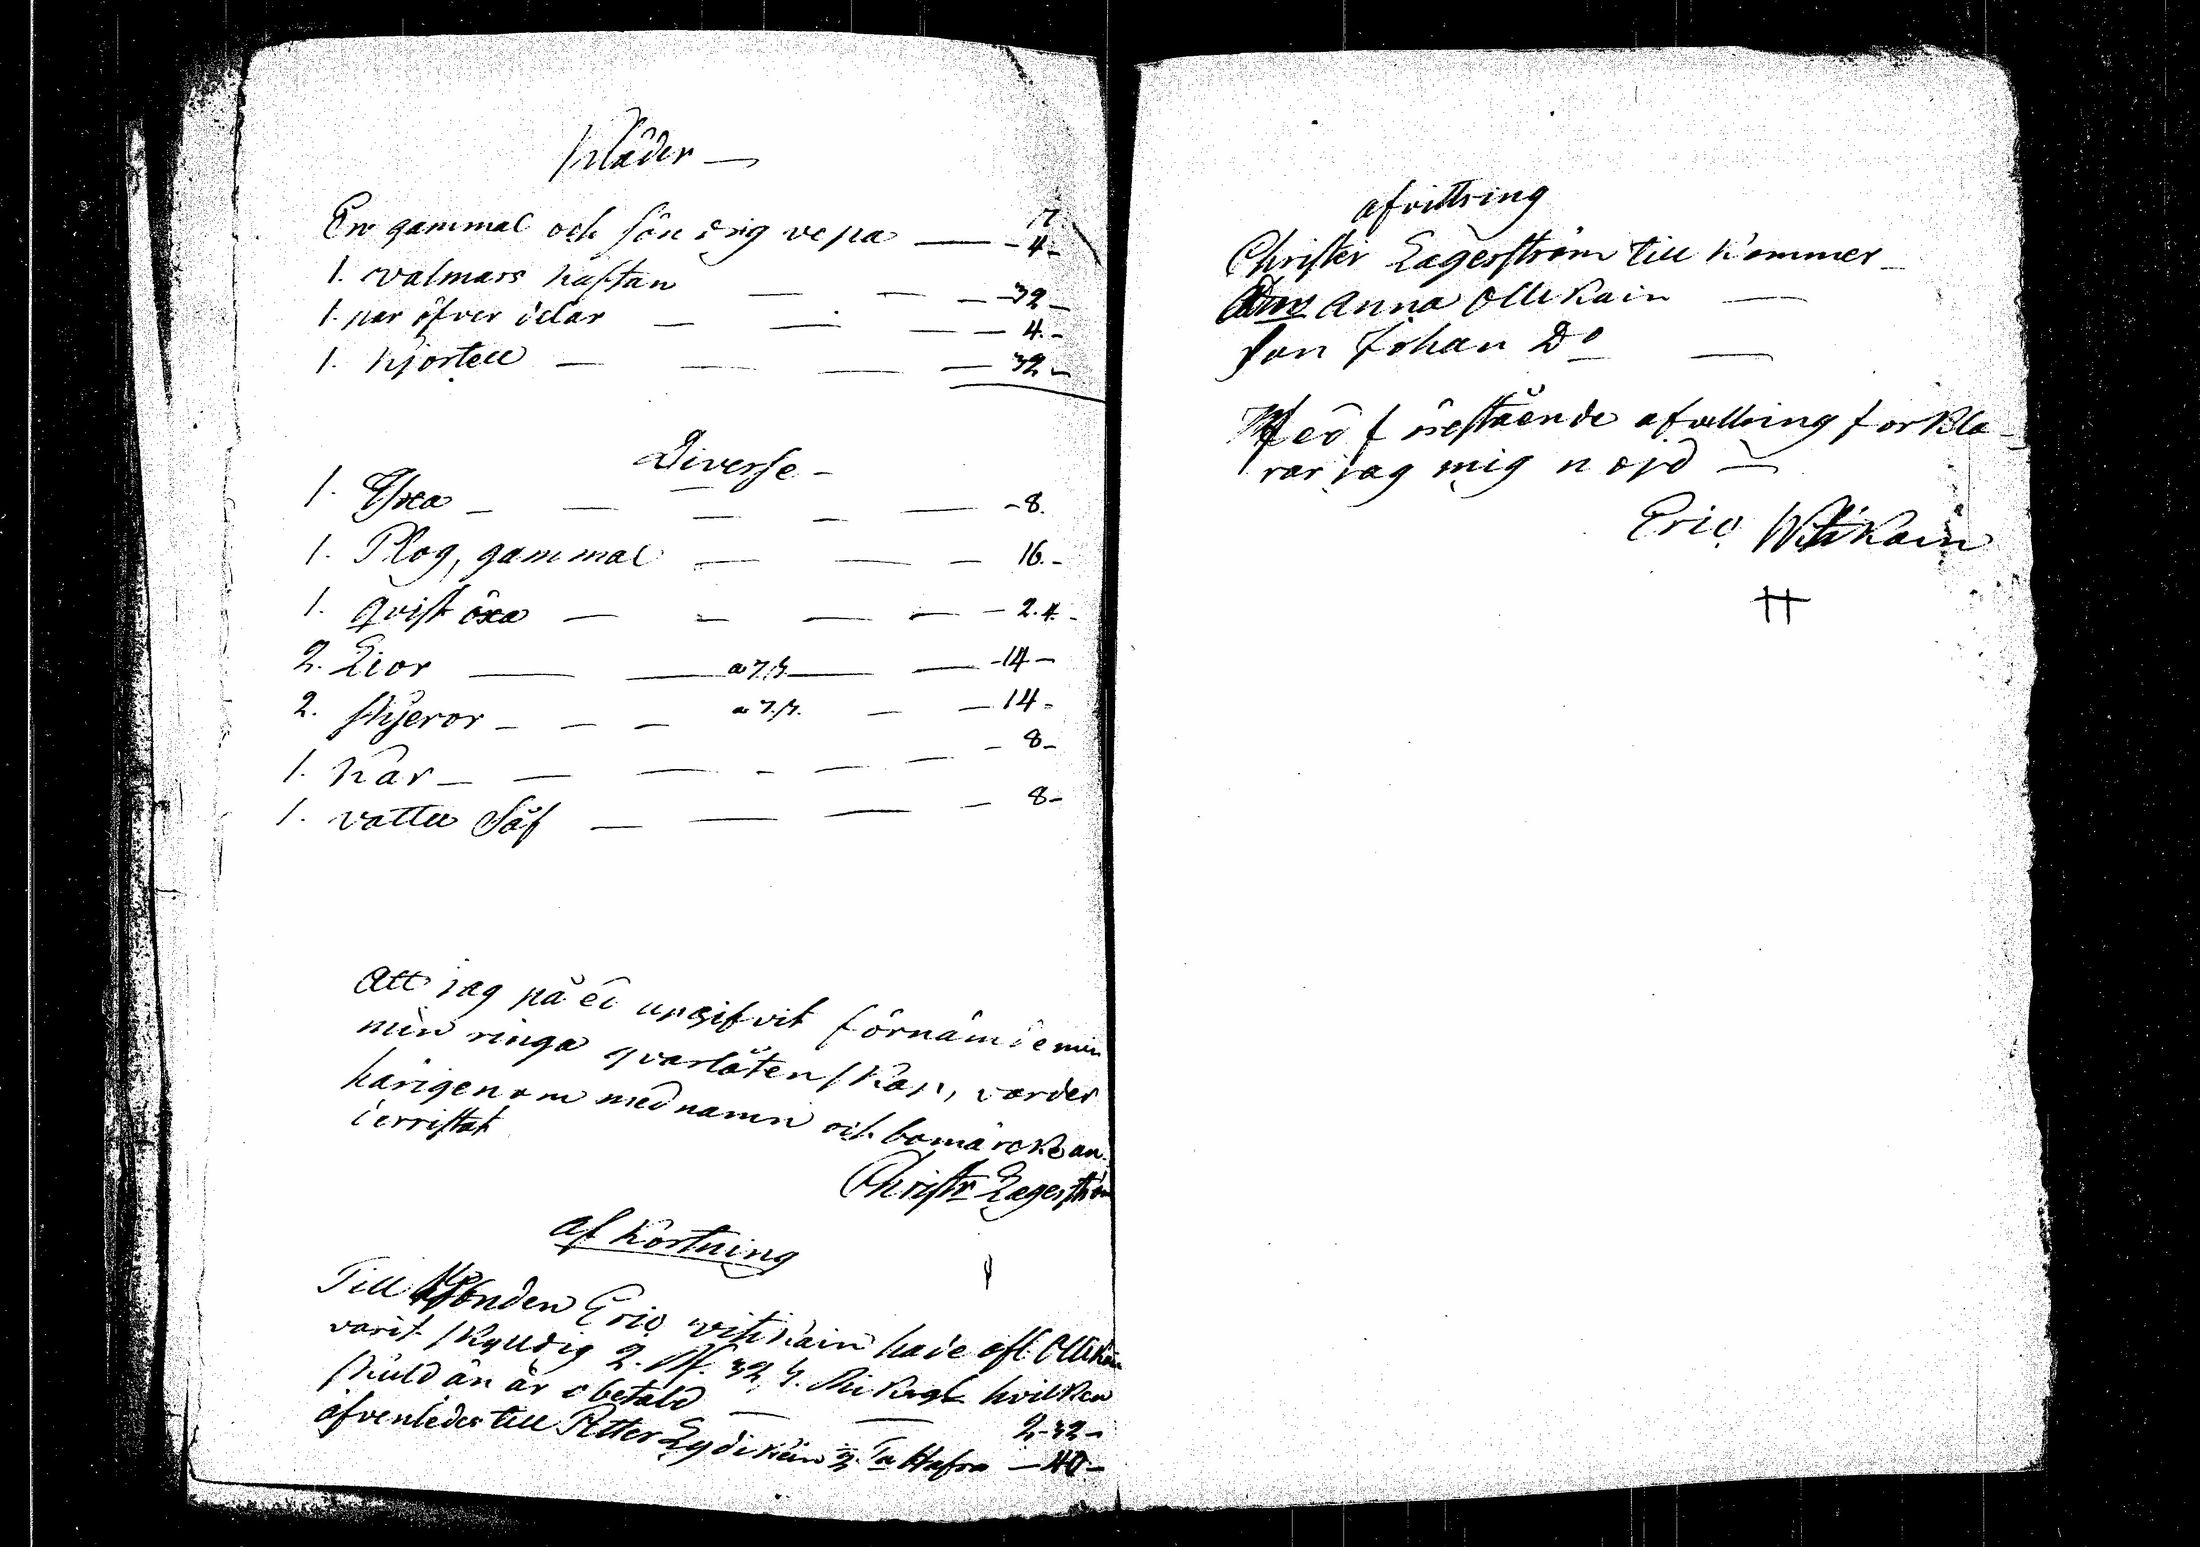 Kläder —
En gammal och söndrig vepa — - 4 -
1. valmars kaftan — — — 32 -
1. par öfver delar — — — — 4. -
1. kjortell — — — — 32 -
Diverse -
1. Yxa - — — - — - 8.
1. Plog, gammal — — — 16. -
1. qvist öxa — - — — — 2.4. -
2. Lior — — a 7 s. — — -14 -
2. skjeror - - — a 7. s. — — 14 -
1. Kar — — — - — — - 8 -
1. vattu Såf — — — — 8 -
Att jag på ed uppgifvit förnämde min
min ringa qvarlåtenskap, varder
härigenom med namn och bomärcke an
Christr Lagerström
af Kortning
Till Bonden Eric vitikain hade afl. Ollikain
varit skylldig 2. 32 s. hvilken
skuld än är obetald — — 2-32 -
äfvenledes till Petter Lydikäin Hafra — 40 -
afvittring
Christer Lagerström till kommer -
Anna Ollikain —
son Johan Do —
Med förestående afvittring forkla-
rar jag mig nöjd —
Eric Witikain